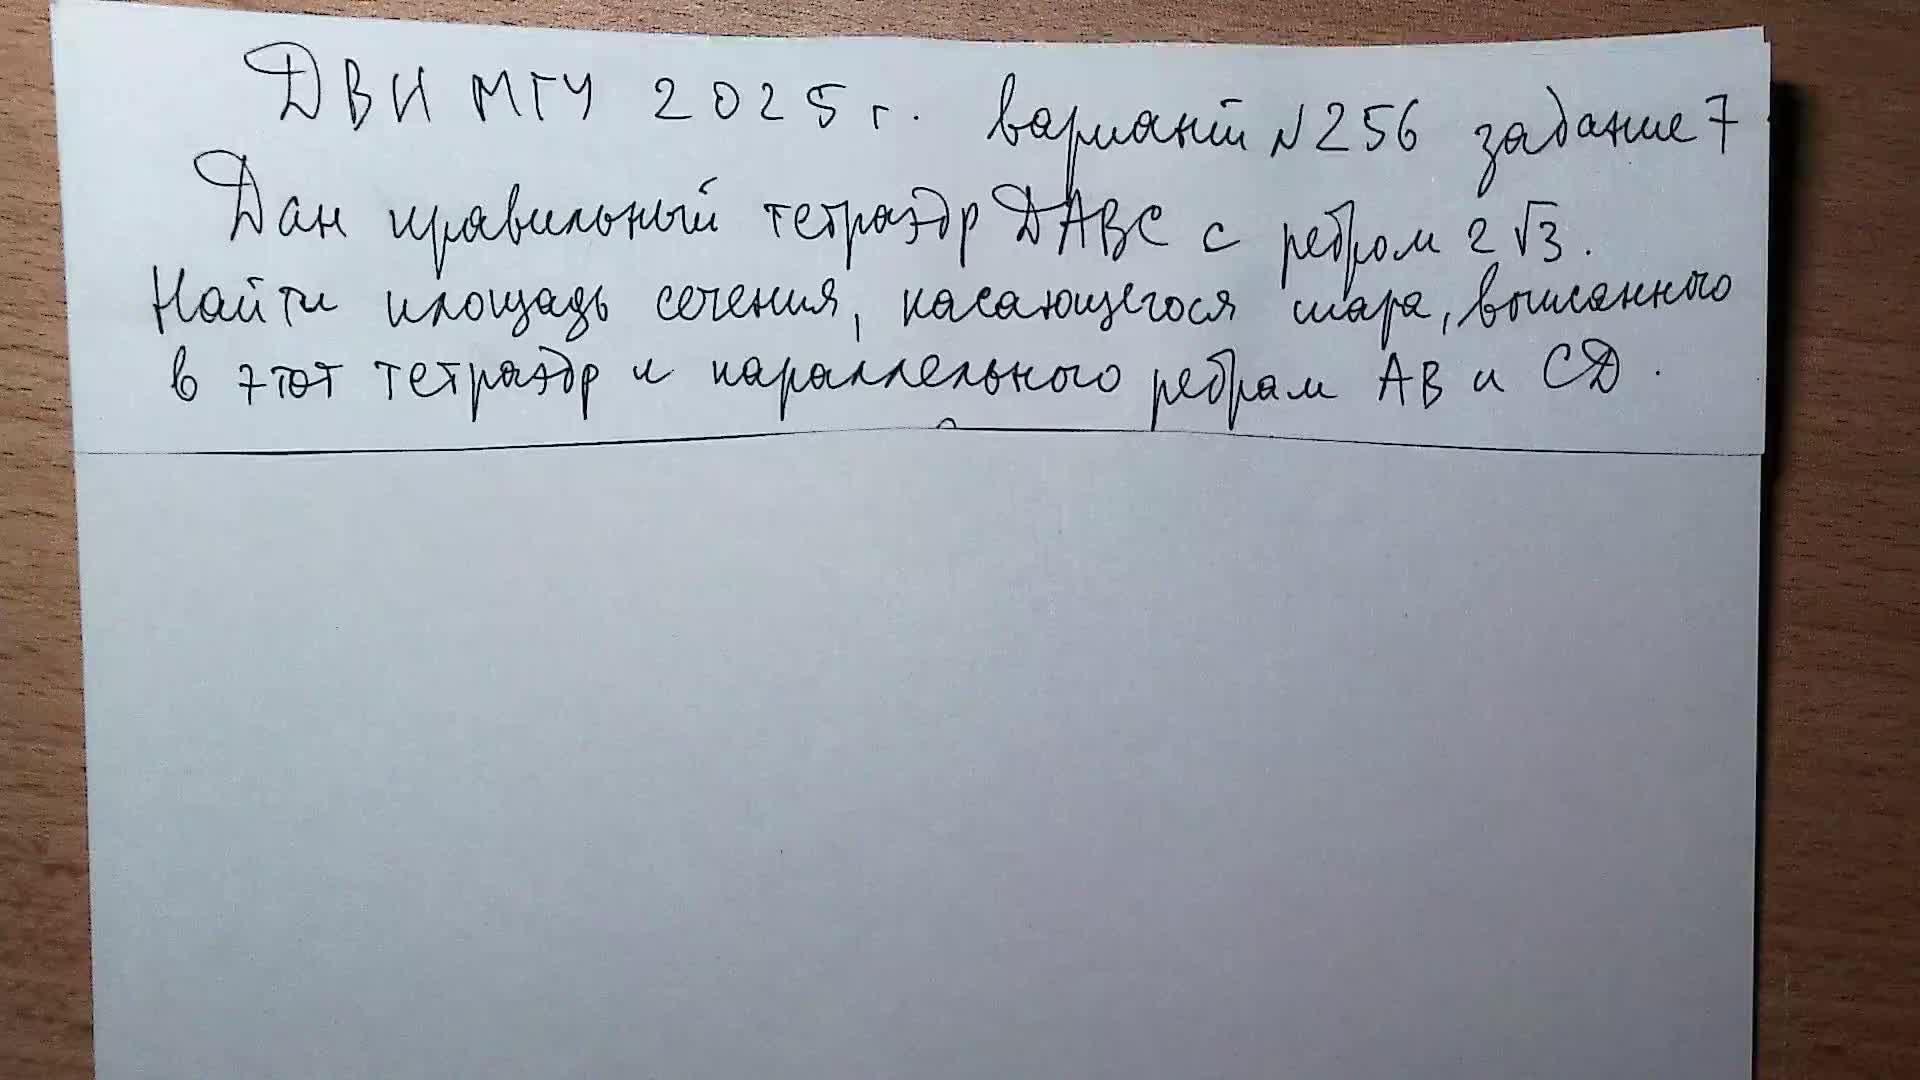 ДВИ МГУ 2025 г. вариант №256 задание 7
Дан правильный тетраэдр DABC с ребром 2√3.
Найти площадь сечения, касающегося шара, вписанного
в этот тетраэдр и параллельного ребрам AB и CD.